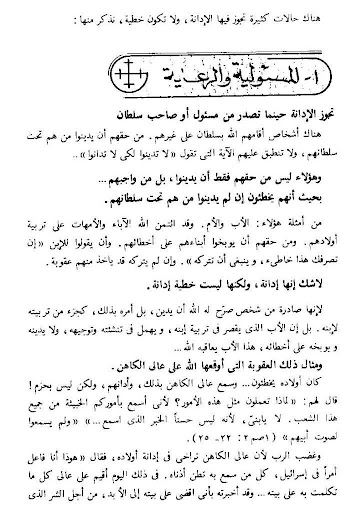 هناك حالات كثيرة تجوز فيها الإدانة ، ولا تكون خطية ، نذكر منها :
١- المسئولية والرعاية
تجوز الإدانة حينما تصدر من مسئول أو صاحب سلطان
هناك أشخاص أقامهم الله بسلطان على غيرهم . من حقهم أن يدينوا من هم تحت
سلطانهم ، ولا تنطبق عليهم الآية التى تقول « لا تدينوا لكى لا تدانوا » ..
وهؤلاء ليس من حقهم فقط أن يدينوا ، بل من واجبهم ...
بحيث أنهم يخطئون إن لم يدينوا من هم تحت سلطانهم .
من أمثلة هؤلاء : الأب والأم . وقد ائتمن الله الآباء والأمهات على تربية
أولادهم . ومن حقهم أن يوبخوا أبناءهم على أخطائهم . وأن يقولوا للإبن « إن
تصرفك هذا خاطىء ، و ينبغى أن تتركه » . وإن لم يتركه قد ياخذ منهم عقوبة .
لاشك إنها إدانة ، ولكنها ليست خطية إدانة .
لإنها صادرة من شخص صرّح له الله أن يدين ، بل أمره بذلك ، كجزء من تربيته
لإبنه . بل إن الأب الذى يقصر فى تربية إبنه ، و يهمل فى تنشئته وتوجيهه ، ولا يدينه
و يوبخه على أخطائه ، هذا الأب يعاقبه الله ...
ومثال ذلك العقوبة التى أوقعها الله على عالى الكاهن .
كان أولاده يخطئون... وسمع عالى الكاهن بذلك ، وأدانهم ، ولكن ليس بحزم !
قال لهم : « لماذا تعملون مثل هذه الأمور؟ لأنى أسمع بأموركم الخبيثة من جميع
هذا الشعب . لا يابنىّ ، لأنه ليس حسناً الخبر الذى اسمع ... » « ولم يسمعوا
لصوت أبيهم » ( ١صم ٢ : ٢٢ ــ ٢٥ ) .
وغضب الرب لأن عالى الكاهن تراخى فى إدانة أولاده ، فقال « هوذا أنا فاعل
أمراً فى إسرائيل ، كل من سمع به تطن أذناه . فى ذلك اليوم أقيم على عالى كل ما
تكلمت به على بيته ... وقد أخبرته بأنى اقضى على بيته إلى الأبد ، من أجل الشر الذى